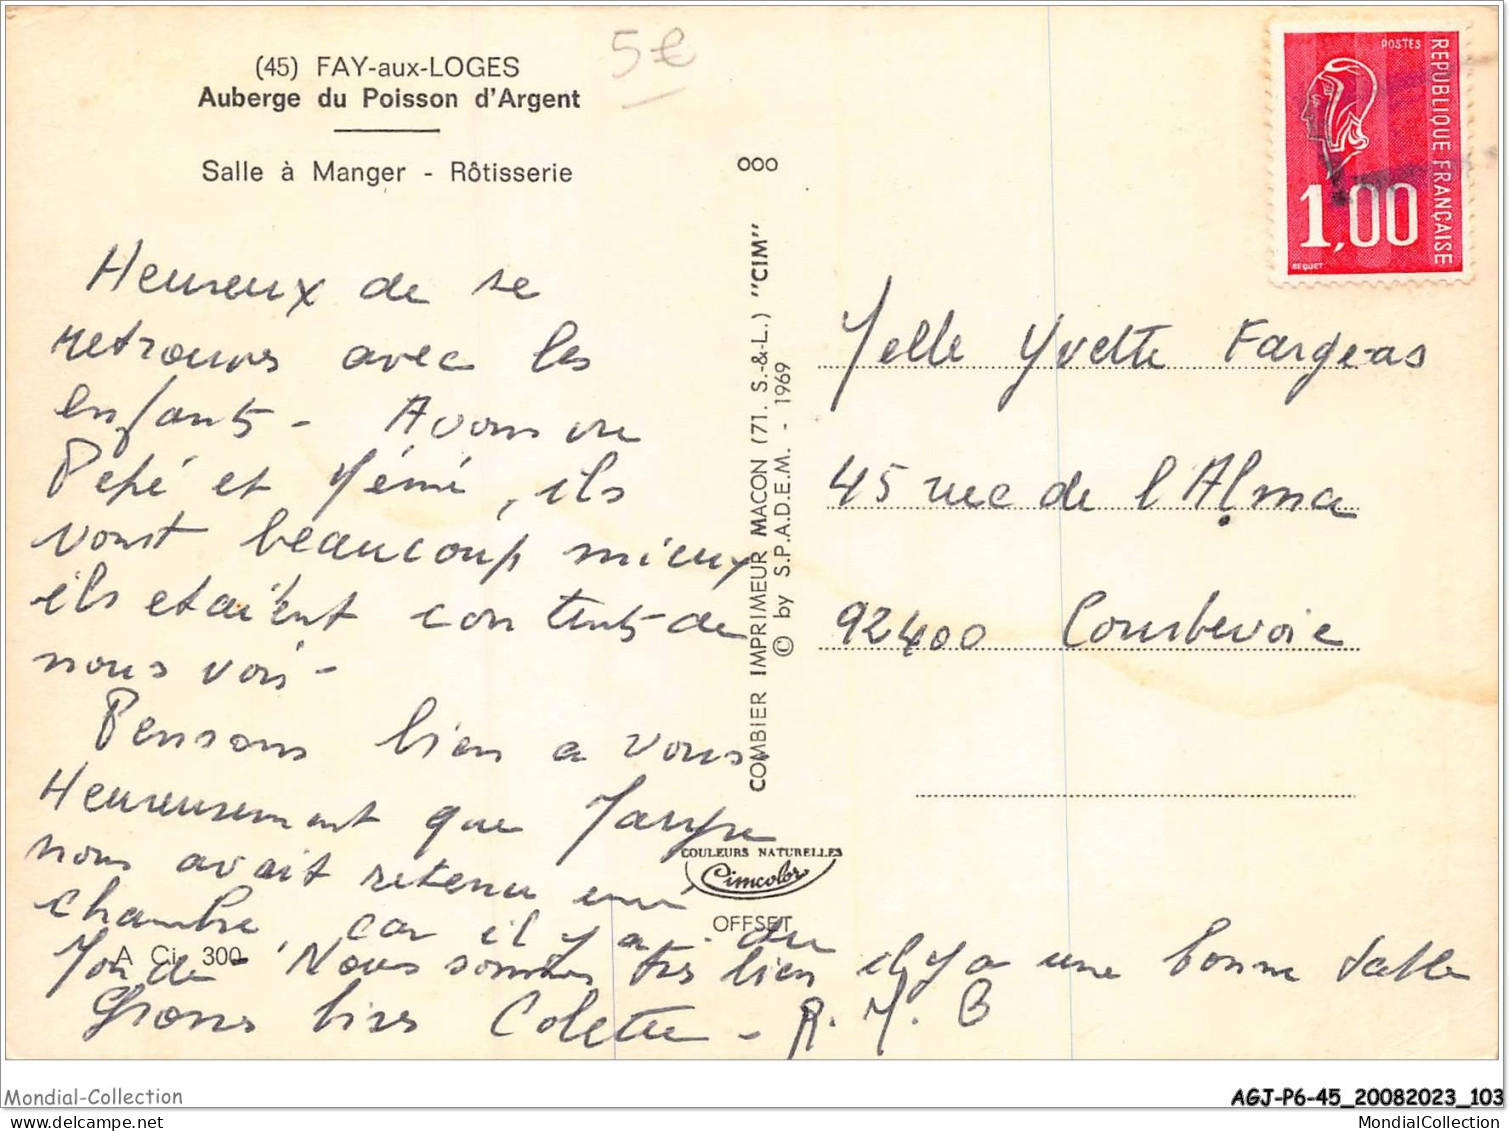 (45) FAY-aux-LOGES
Auberge du Poisson d'Argent
Salle à Manger - Rôtisserie
5€
POSTES
REPUBLIQUE FRANÇAISE
1,00
BEQUET
Heureux de se
retrouver avec les
enfants - Avons vu
Pépé et Mémé, ils
vont beaucoup mieux
ils etaient contents de
nous voir -
Pensons bien a vous.
Heureusement que
nous avait retenu une
chambre, car il y a du
Monde - Nous sommes très bien il y a une bonne table
Grosses bises Colette - R. M. B
ooo
COMBIER IMPRIMEUR MACON (71. S.-&-L.) "CIM"
© by S.P.A.D.E.M. - 1969
Melle Yvette Fargeas
45 rue de l'Alma
92400 Courbevoie
COULEURS NATURELLES
Cimcolor
OFFSET
A Ci 300
Mondial-Collection
AGJ-P6-45_20082023_103
MondialCollection